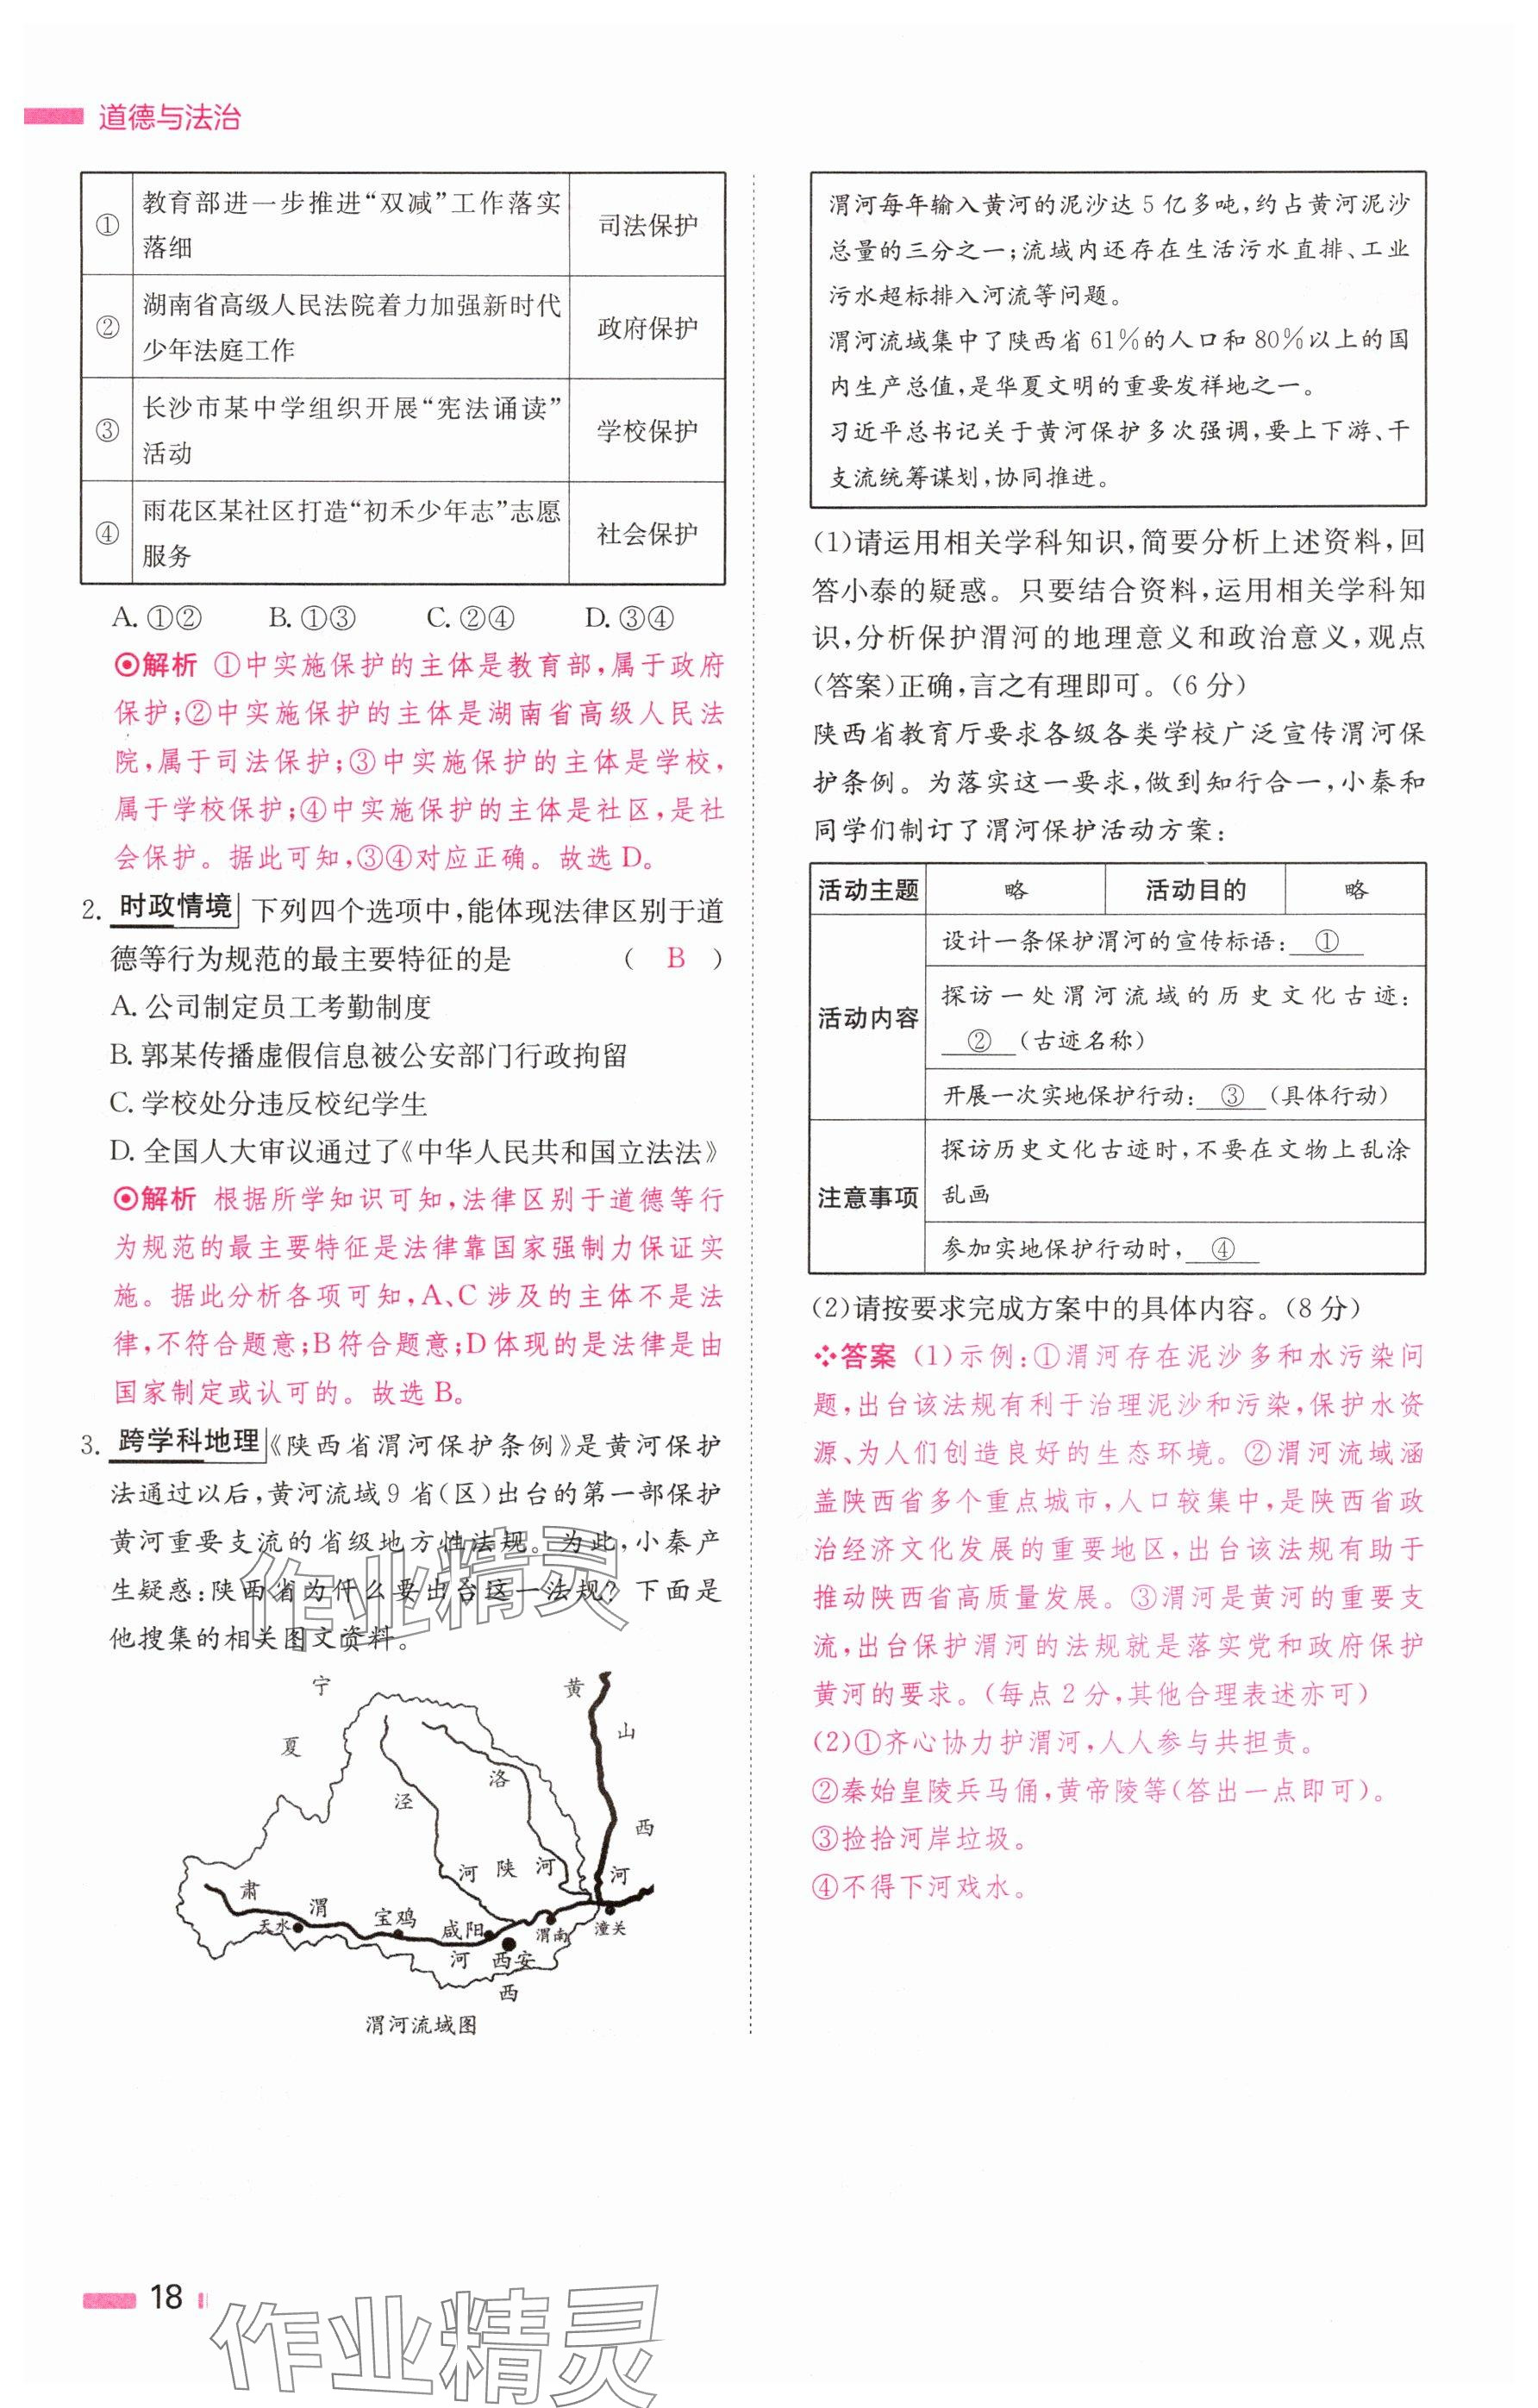 道德与法治
①
教育部进一步推进“双减”工作落实
落细
司法保护
②
湖南省高级人民法院着力加强新时代
少年法庭工作
政府保护
③
长沙市某中学组织开展“宪法诵读”
活动
学校保护
④
雨花区某社区打造“初禾少年志”志愿
服务
社会保护
A. ①② B. ①③ C. ②④ D. ③④
解析 ①中实施保护的主体是教育部,属于政府
保护;②中实施保护的主体是湖南省高级人民法
院,属于司法保护;③中实施保护的主体是学校,
属于学校保护;④中实施保护的主体是社区,是社
会保护。据此可知,③④对应正确。故选 D。
2. 时政情境 下列四个选项中,能体现法律区别于道
德等行为规范的最主要特征的是 ( B )
A. 公司制定员工考勤制度
B. 郭某传播虚假信息被公安部门行政拘留
C. 学校处分违反校纪学生
D. 全国人大审议通过了《中华人民共和国立法法》
解析 根据所学知识可知,法律区别于道德等行
为规范的最主要特征是法律靠国家强制力保证实
施。据此分析各项可知,A、C 涉及的主体不是法
律,不符合题意;B 符合题意;D 体现的是法律是由
国家制定或认可的。故选 B。
3. 跨学科地理 《陕西省渭河保护条例》是黄河保护
法通过以后,黄河流域 9 省(区)出台的第一部保护
黄河重要支流的省级地方性法规。为此,小秦产
生疑惑:陕西省为什么要出台这一法规? 下面是
他搜集的相关图文资料。
宁
黄
山
夏
洛
泾
西
河 陕 河
河
肃
渭
天水
宝鸡
咸阳
渭南
潼关
河
西安
西
渭河流域图
渭河每年输入黄河的泥沙达 5 亿多吨,约占黄河泥沙
总量的三分之一;流域内还存在生活污水直排、工业
污水超标排入河流等问题。
渭河流域集中了陕西省 61%的人口和 80%以上的国
内生产总值,是华夏文明的重要发祥地之一。
习近平总书记关于黄河保护多次强调,要上下游、干
支流统筹谋划,协同推进。
(1)请运用相关学科知识,简要分析上述资料,回
答小泰的疑惑。只要结合资料,运用相关学科知
识,分析保护渭河的地理意义和政治意义,观点
(答案)正确,言之有理即可。(6 分)
陕西省教育厅要求各级各类学校广泛宣传渭河保
护条例。为落实这一要求,做到知行合一,小秦和
同学们制订了渭河保护活动方案:
活动主题 略 活动目的 略
活动内容
设计一条保护渭河的宣传标语: ①
探访一处渭河流域的历史文化古迹:
② (古迹名称)
开展一次实地保护行动: ③ (具体行动)
注意事项
探访历史文化古迹时,不要在文物上乱涂
乱画
参加实地保护行动时, ④
(2)请按要求完成方案中的具体内容。(8 分)
答案 (1)示例:①渭河存在泥沙多和水污染问
题,出台该法规有利于治理泥沙和污染,保护水资
源、为人们创造良好的生态环境。②渭河流域涵
盖陕西省多个重点城市,人口较集中,是陕西省政
治经济文化发展的重要地区,出台该法规有助于
推动陕西省高质量发展。③渭河是黄河的重要支
流,出台保护渭河的法规就是落实党和政府保护
黄河的要求。(每点 2 分,其他合理表述亦可)
(2)①齐心协力护渭河,人人参与共担责。
②秦始皇陵兵马俑,黄帝陵等(答出一点即可)。
③捡拾河岸垃圾。
④不得下河戏水。
作业精灵
18
作业精灵